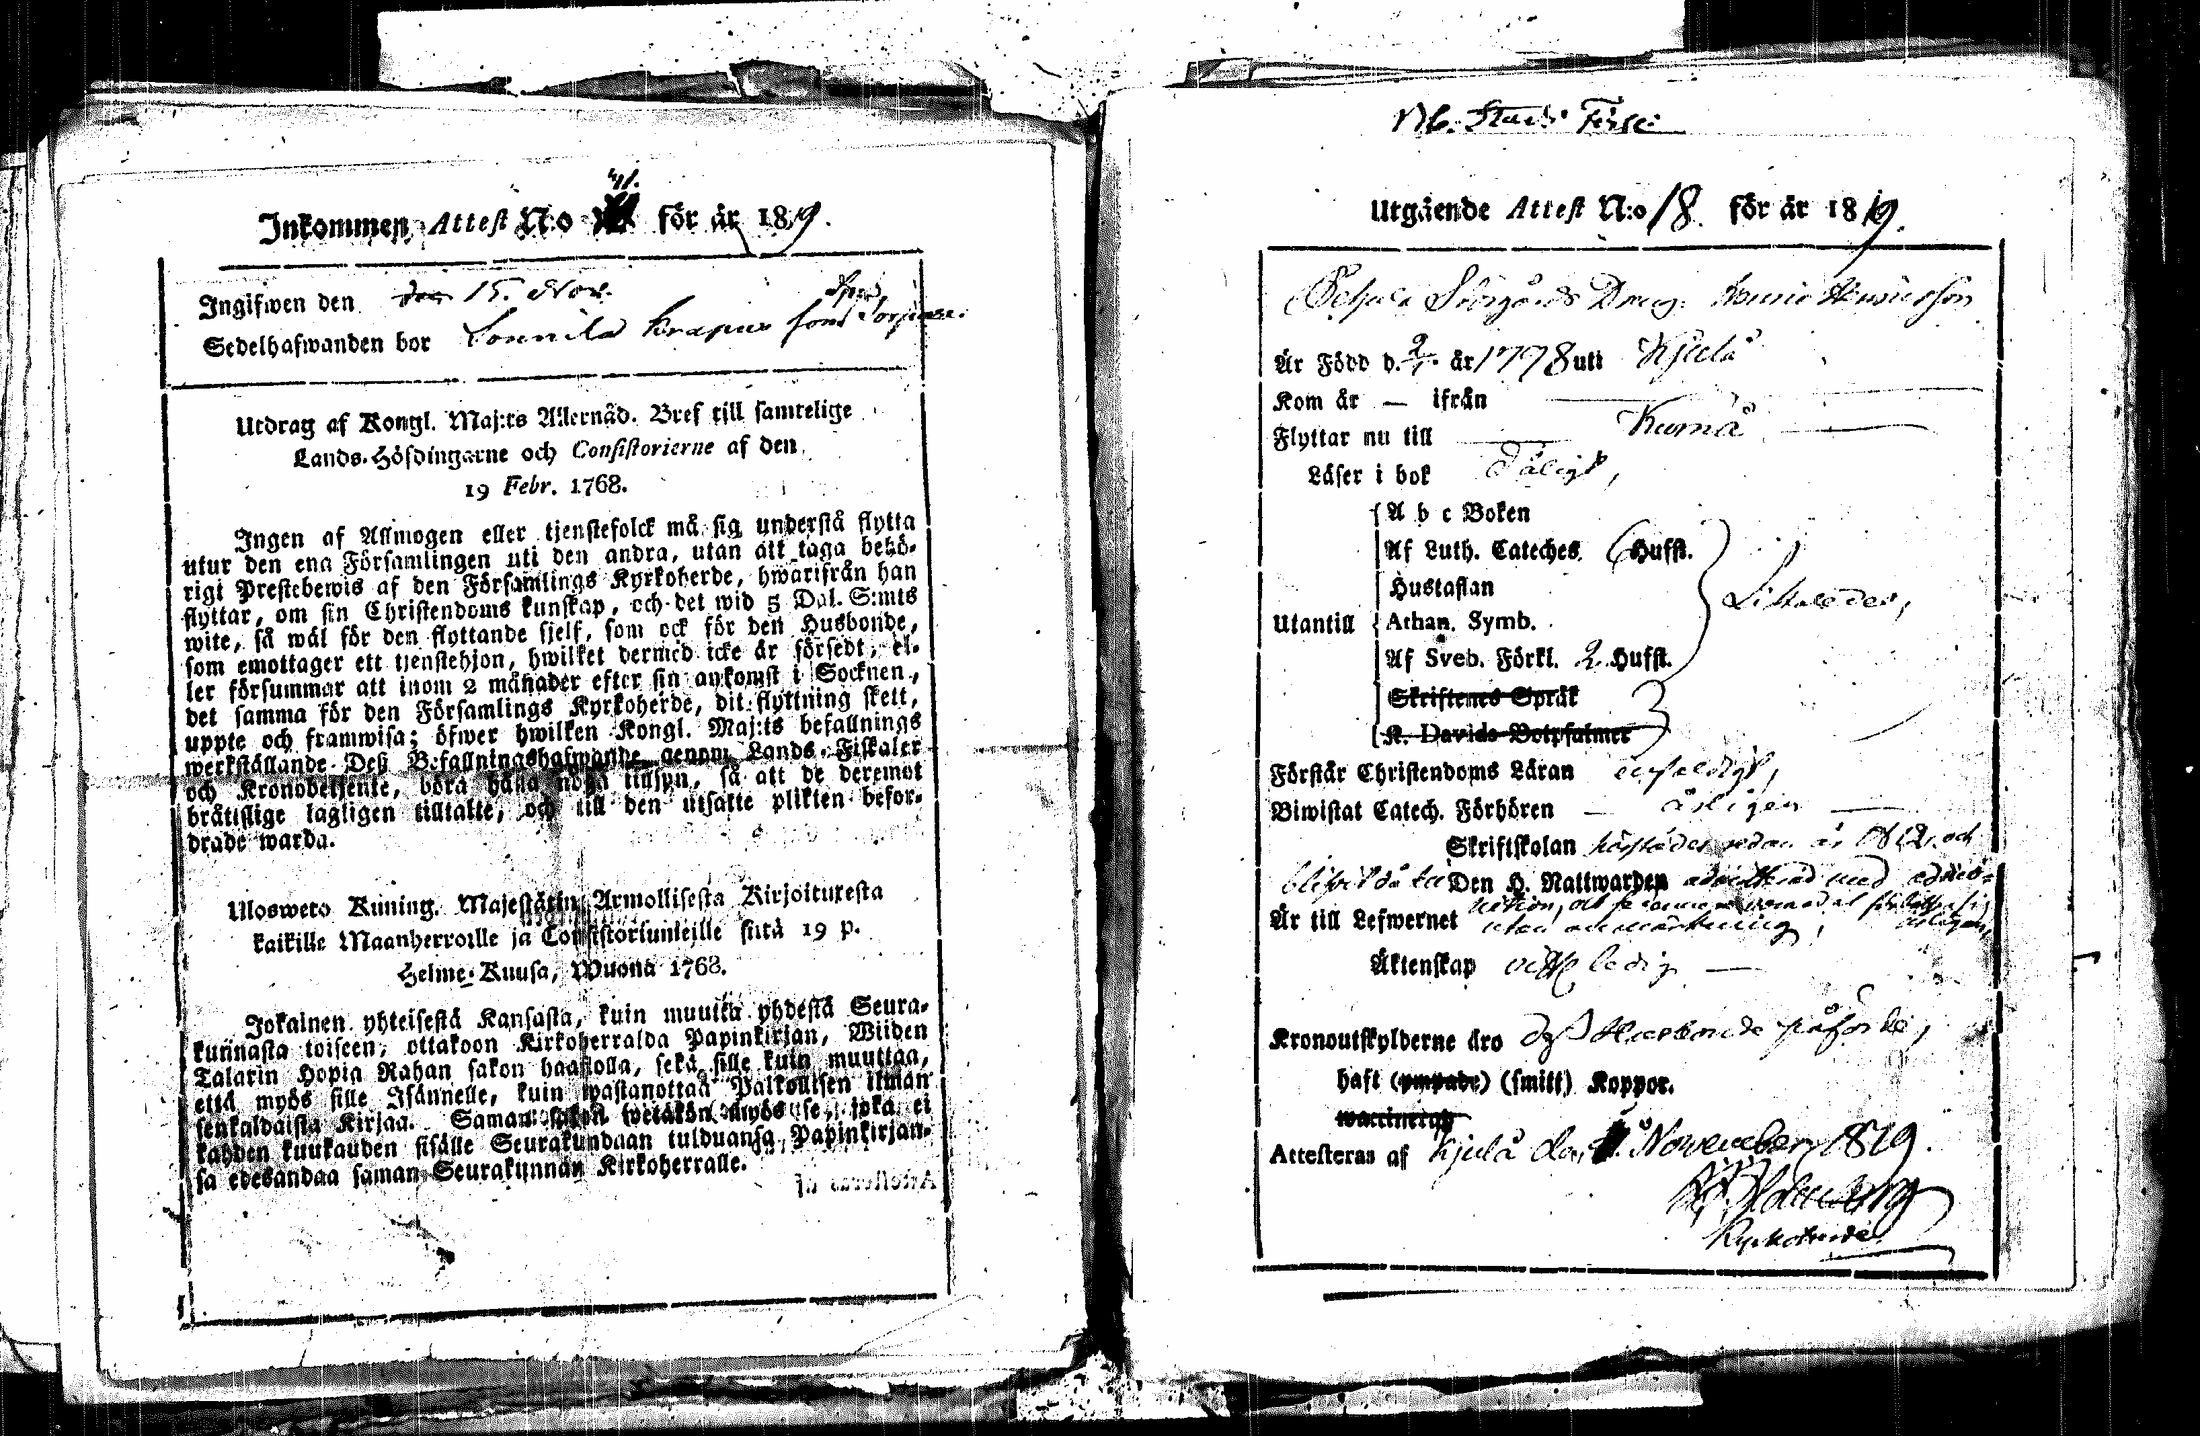 41.
Inkommen Attest N:o för år 1819.
Ingifwen den 15. Nov.
Sedelhafwanden bor Sonnila Krapus som
Utdrag af Kongl. Maj:ts Allernåd. Bref till samtelige
Lands-Höfdingarne och Consistorierne af den
19 Febr. 1768.
Ingen af Allmogen eller tjenstefolck må sig understå flytta
utur den ena Församlingen uti den andra, utan att taga behö-
rigt Prestebewis af den Församlings Kyrkoherde, hwarifrån han
flyttar, om sin Christendoms kunskap, och det wid 5 Dal. S:mts
wite, så wäl för den flyttande sjelf, som ock för den Husbonde,
som emottager ett tjenstehjon, hwilket dermed icke är försedt, el-
ler försummar att inom 2 månader efter sin ankomst i Socknen,
det samma för den Församlings Kyrkoherde, dit flyttning skett,
uppte och framwisa; öfwer hwilken Kongl. Maj:ts befallnings
werkställande Deß Befallningshafwande genom Lands-Fiskaler
och Kronobetjente, böra hålla noga tillsyn, så att de deremot
bråtslige lagligen tilltalte, och till den utsatte plikten befor-
drade warda.
Ulosweto Kuning. Majestätin Armollisesta Kirjoituxesta
kaikille Maanherroille ja Consistoriumeille siitä 19 p.
Helme-Kuusa, Wuona 1768.
Jokainen yhteisestä Kansasta, kuin muutta yhdestä Seura-
kunnasta toiseen, ottakoon Kirkoherralda Papinkirjan, Wiiden
Talarin Hopia Rahan sakon haastolla, sekä sille kuin muuttaa,
että myös sille Isännelle, kuin wastanottaa Palkollisen ilman
senkaldaista Kirjaa. Saman sakon wetäkön myös se, joka ei
kahden kuukauden sisälle Seurakundaan tulduansa, Papinkirjan-
sa edesandaa saman Seurakunnan Kirkoherralle.
Utgående Attest N:o 18 för år 1819.
Sörgårds Dräng Henric Henricsson
Är Född d. år 1778 uti Kjulå
Kom år — ifrån
Flyttar nu till Kumå
Läser i bok dåligt,
A b c Boken
Af Luth. Cateches. Hufst.
Hustaflan
Utantill Athan. Symb. Likaledes,
Af Sveb. Förkl. 2 Hufst.
Skriftenes Språk
K. Davids Botpsalmer
Förstår Christendoms Läran enfaldigt,
Biwistat Catech. Förhören — årligen —
Skriftskolan härstädes sedan år 1812. och
blifvit då till Den H. Nattwarden admitterad med
Är till Lefwernet utan anmärkning,
Äktenskap ledig —
Kronoutskylderne äro deß Husbonde påförde,
haft (ympade) (smitt) Koppor.
waccinerad
Attesteras af Kjulå den November 1819.
Kyrkoherde